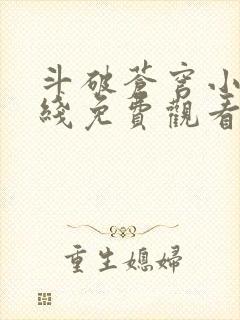 斗破蒼穹小
綫免費觀看
重生媳婦